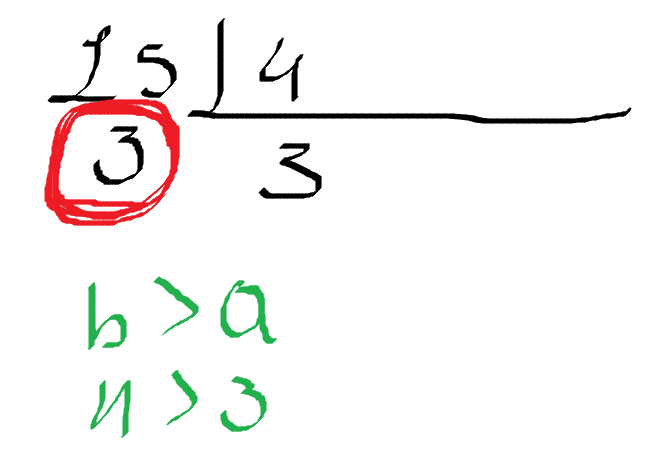 15 4
3 3
b > a
4 > 3